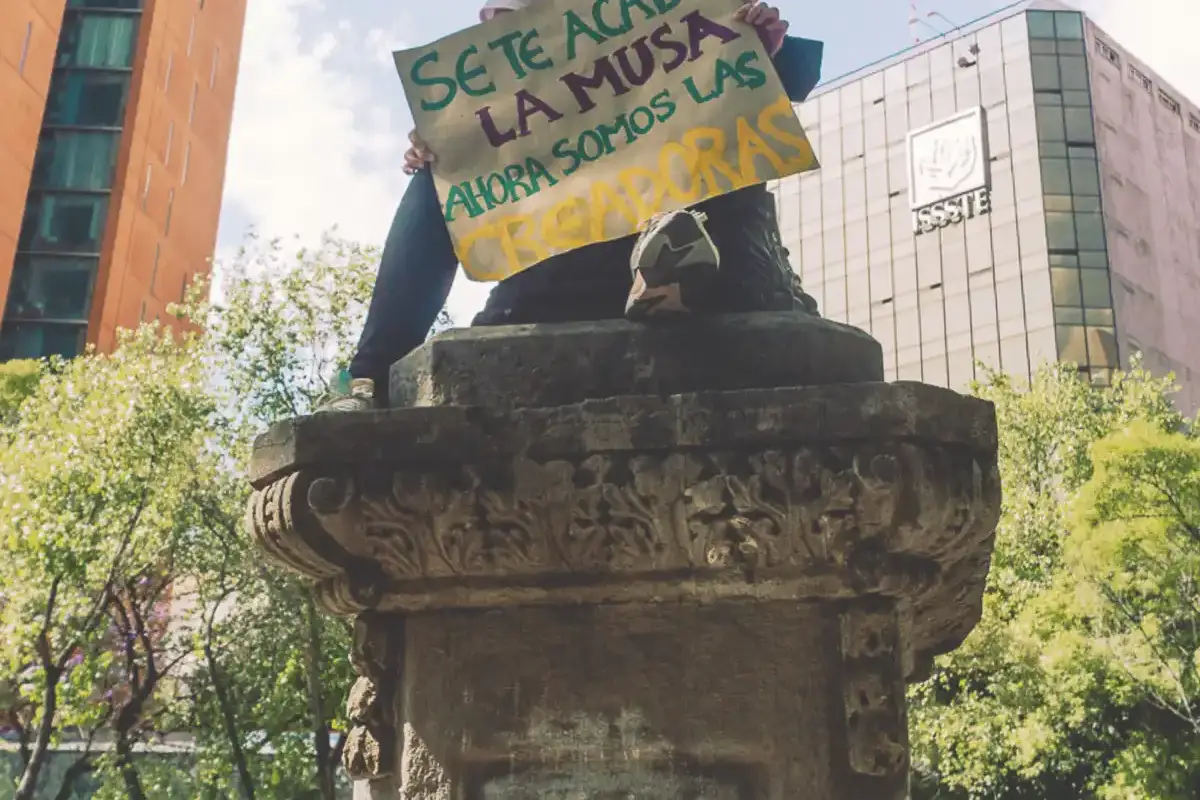 SE TE ACABÓ
LA MUSA
AHORA SOMOS LAS
CREADORAS
ISSSTE